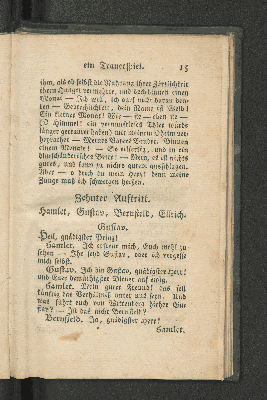 ein Trauerspiel. 15
ihm, als ob selbst die Nahrung ihrer Zärtlichkeit
ihren Hunger vermehrte, und doch binnen einen
Monat — Ich will, ich darf nicht daran den-
ken — Gebrechlichkeit, dein Name ist Weib!
Ein kleiner Monat! Wie — sie — eben sie —
(O Himmel! ein vernunftloses Thier würde
länger getrauert haben) mit meinem Oheim ver-
heyrathet — Meines Vaters Bruder. Binnen
einem Monate! — So eilfertig, und in ein
blutschänderisches Bette! — Nein, es ist nichts
gutes, und kann zu nichts gutem ausschlagen.
Aber — o brich du mein Herz! denn meine
Zunge muß ich schweigen heißen.
Zehnter Auftritt.
Hamlet, Gustav, Bernfeld, Ellrich.
Gustav.
Heil, gnädigster Prinz!
Hamlet. Ich erfreue mich, Euch wohl zu
sehen — Ihr seyd Gustav, oder ich vergesse
mich selbst.
Gustav. Ich bin Gustav, gnädigster Herr!
und Euer demüthigster Diener auf ewig.
Hamlet. Mein guter Freund! das soll
künftig das Verhältniß unter uns seyn. Und
was führt euch von Wittenberg hieher Gu-
stav? — Ist das nicht Bernfield?
Bernfield. Ja, gnädigster Herr!
Hamlet.